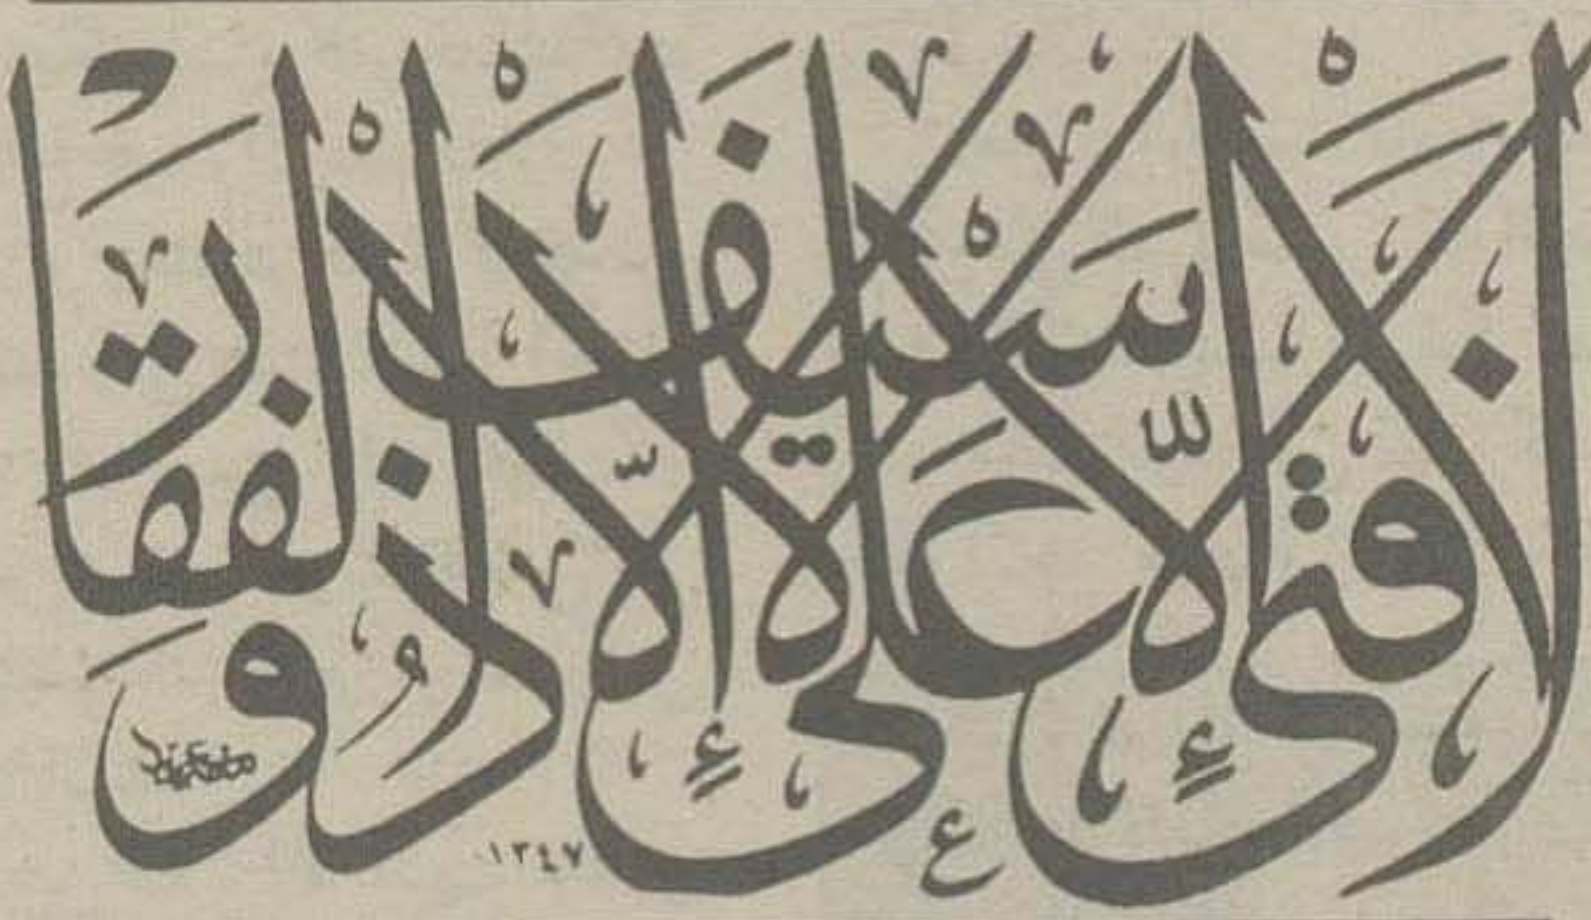 لَا فَتَىٰ إِلَّا عَلِيّ لَا سَيْفَ إِلَّا ذُو الْفَقَار
١٣٤٧